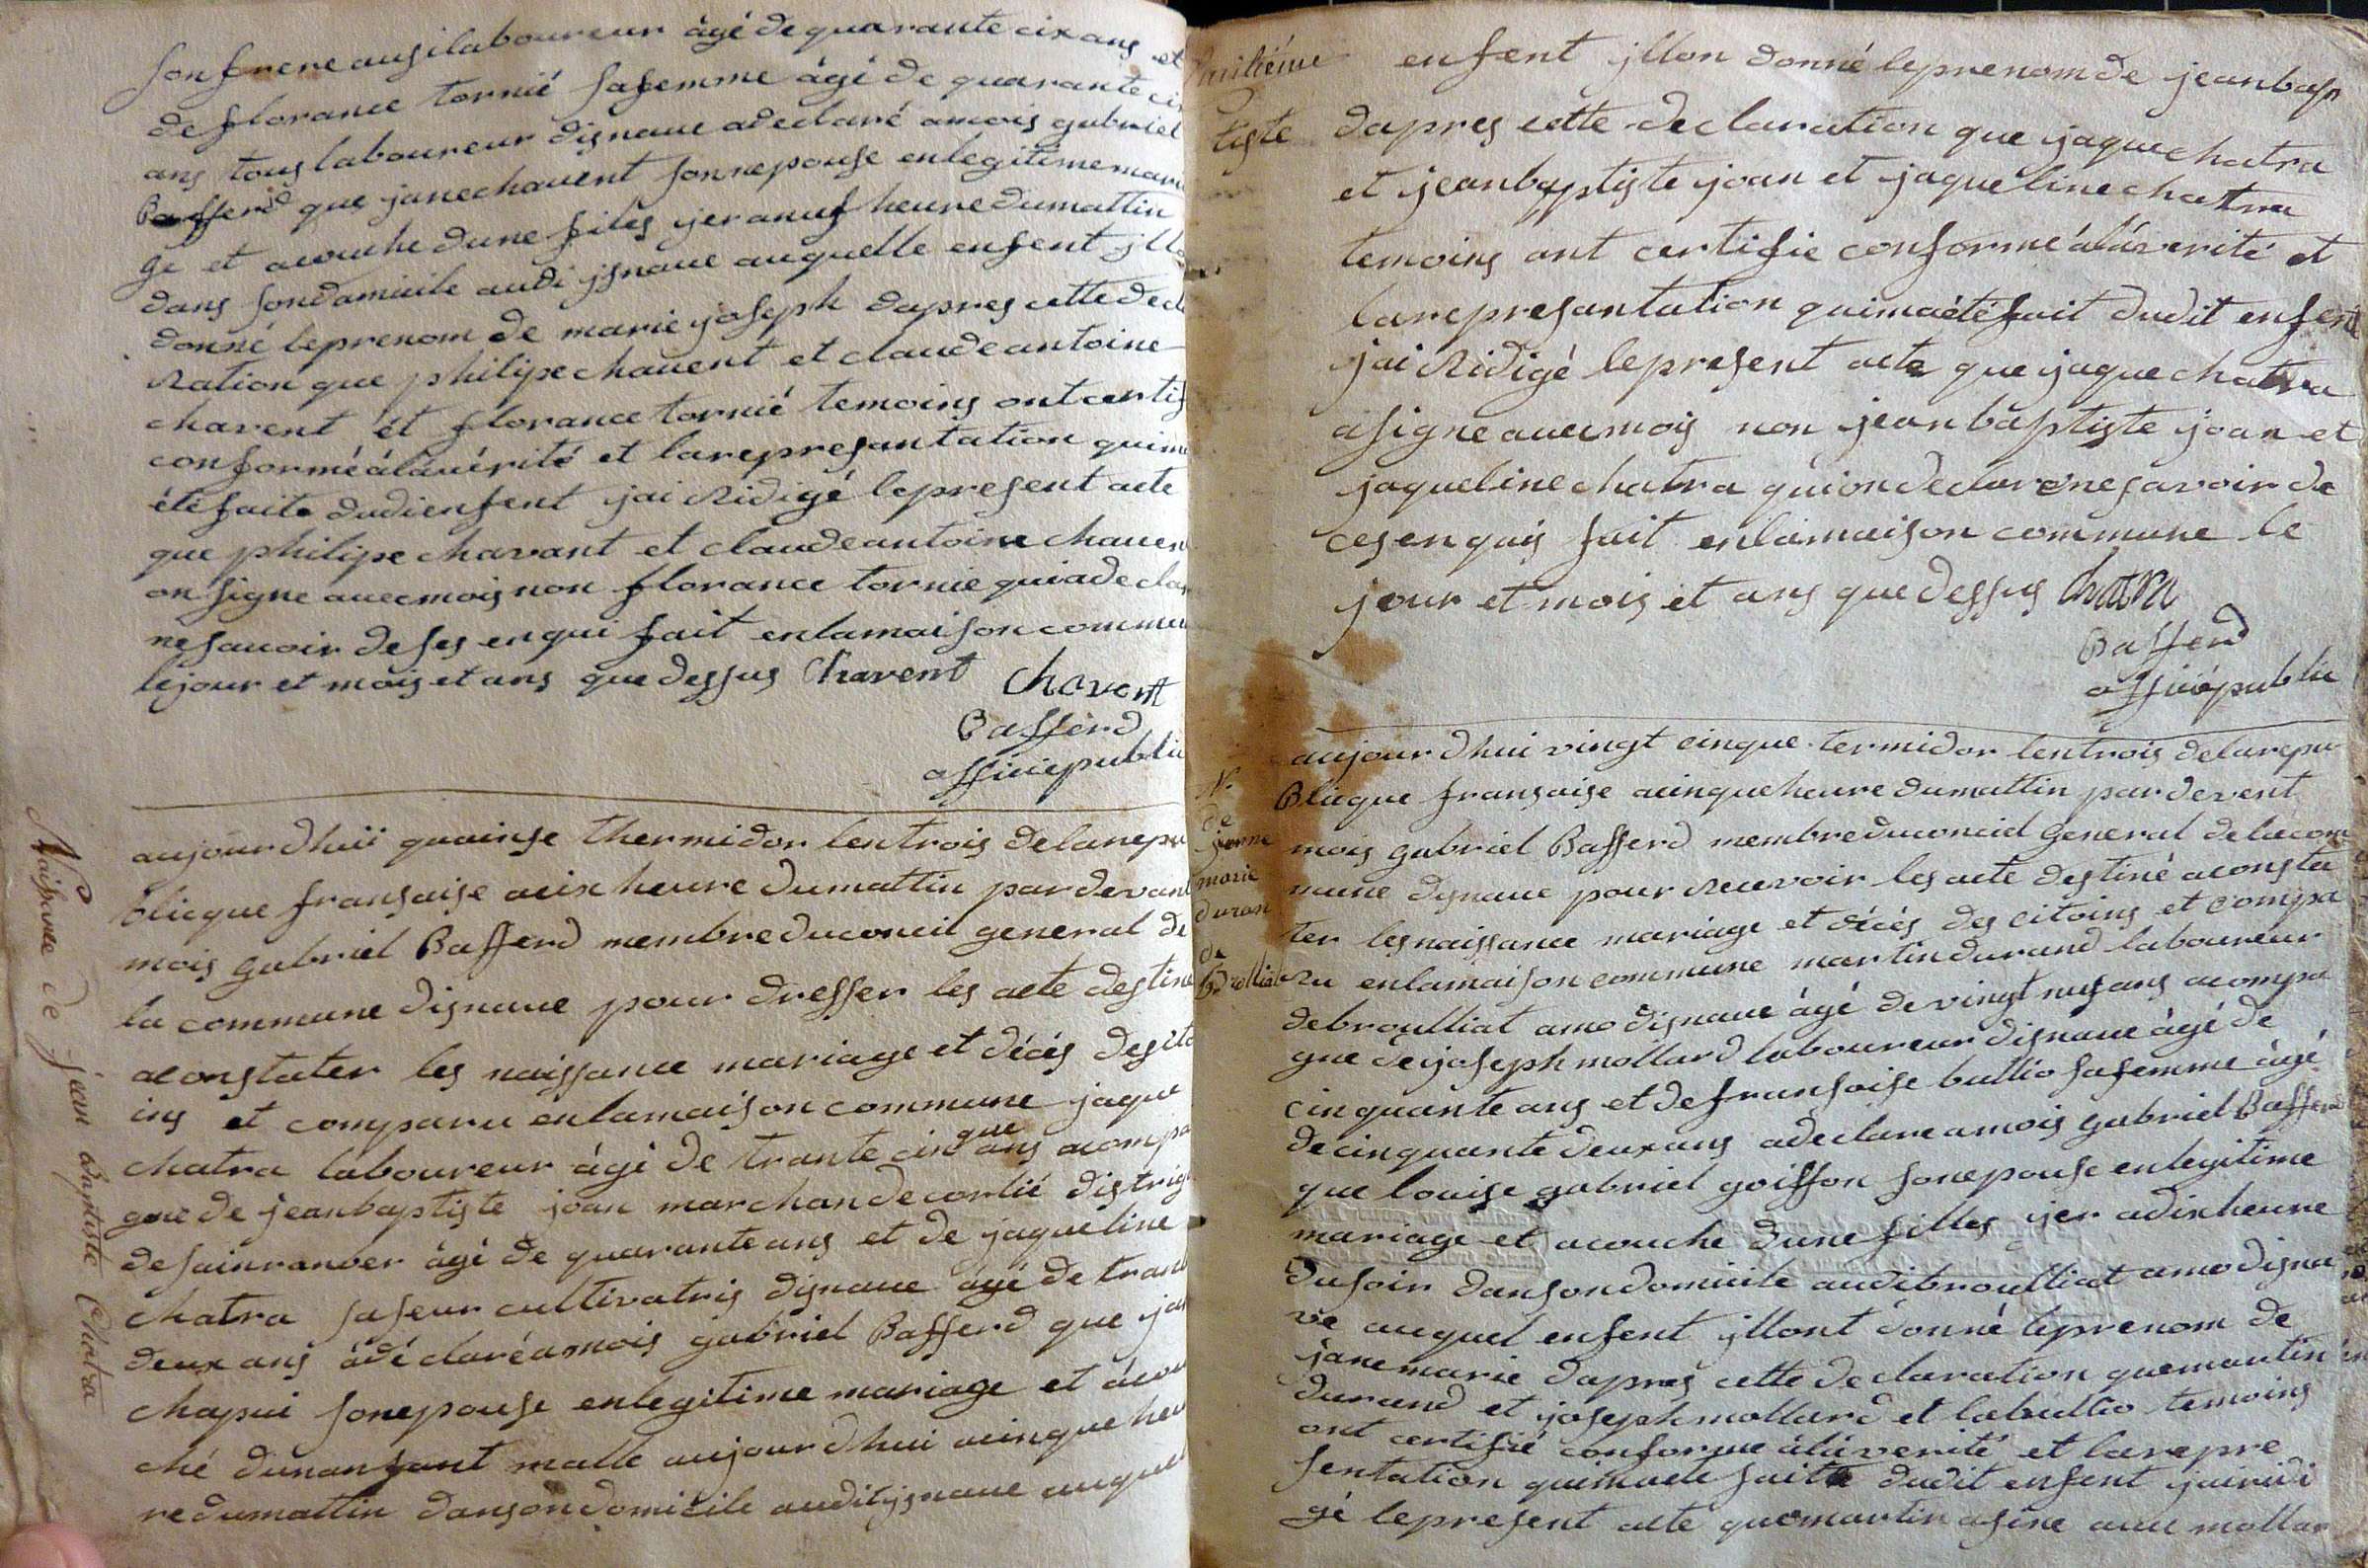 son frere ausi laboureur àgé de quarante cix ans et
de florance tornié sa femme àgé de quarante ci
ans tous laboureur disnaue a declaré a mois gabriel
Bafferd que jane chauent sonn epouse en legitime mari
ge et acouche dune files jer a nuf heure du mattin
dans son damicile audi jsnaue auquelle enfent jllo
donné le prenom de marie joseph dapres cette decla
ration que philipe chauent et claude antoine
chavent et florance tornié temoins ont certif
conformé á la uérité et la represantation qui ma
été faite dudi enfent jai ridigé le present acte
que philipe chavant et claude antoine chauen
on signe auec mois non florance tornie qui a declar
ne sauoir de ses enqui fait en la maison commu
le jour et mois et ans que dessus Chavent Chavent
Bafferd
afficié public
aujourdhui quainse thermidor lentrois de la repu
blicque fransaise a cix heure du mattin par devant
mois gabriel Bafferd membre du conciel general de
la commune disnaue pour dresser les acte destine
a constater les naissance mariage et décés des cito
ins et comparu en la maison commune jaque
que
chatra laboureur àgé de trante cin ans acompa
gne de jean baptiste joan marchan de corlié distrig
de sainranber àgé de quarante ans et de jaqueline
chatra sa seur cultivatris disnaue àgé de trant
deux ans à déclaré a mois gabriel Bafferd que jan
chapui son epouse en legitime mariage et acou
ché dun anfant malle aujourdhui a cinque heu
re du mattin dans on domicile audit jsnaue auquel
Naissance de jean Baptiste Chatra
enfent jllon donné le prenom de jean bap
tiste dapres cette declaration que jaque chatra
et jean baptiste joan et jaqueline chatra
temoins ont certifie conforme á lá verité et
la represantation qui ma été fait dudit enfent
jai ridigé le present acte que jaque chatra
a signe auec mois non jean baptiste joan et
jaqueline chatra qui on declare ne savoir de
ces enquis fait en la maison commune le
jour et mois et ans que dessus Chatra
Bafferd
afficié public
N.
de
janne
marie
duran
de
Brolliat
aujourdhui vingt cinque termidor lentrois de la repu
Blicque fransaise a cinque heure du mattin par devent
mois gabriel Bafferd membre du conciel general de la com
mune disnaue pour recevoir les acte destiné a consta
ter les naissance mariage et décés des citoins et compa
ru en la maison commune martin durand laboureur
de broulliat amo disnaue àgé de vingt nuf ans acompa
gne de joseph mollard laboureur disnaue àgé de
cinquante ans et de fransoise bullio sa femme àgé
de cinquante deux ans a declare a mois gabriel Bafferd
que louise gabriel goiffon son epouse en legitime
mariage et acouche dune filles jer a dix heure
du soir dans on domicile audi broulliat amo disna
ve auquel enfent jllont donné le prenom de
jane marie dapres cette declaration que martin
durand et joseph mollard et la bullio temoins
ont certifié conforme á lá verité et la repre
sentation qui ma ete faite dudit enfent jai ridi
gé le present acte que martin a sine auec mollar